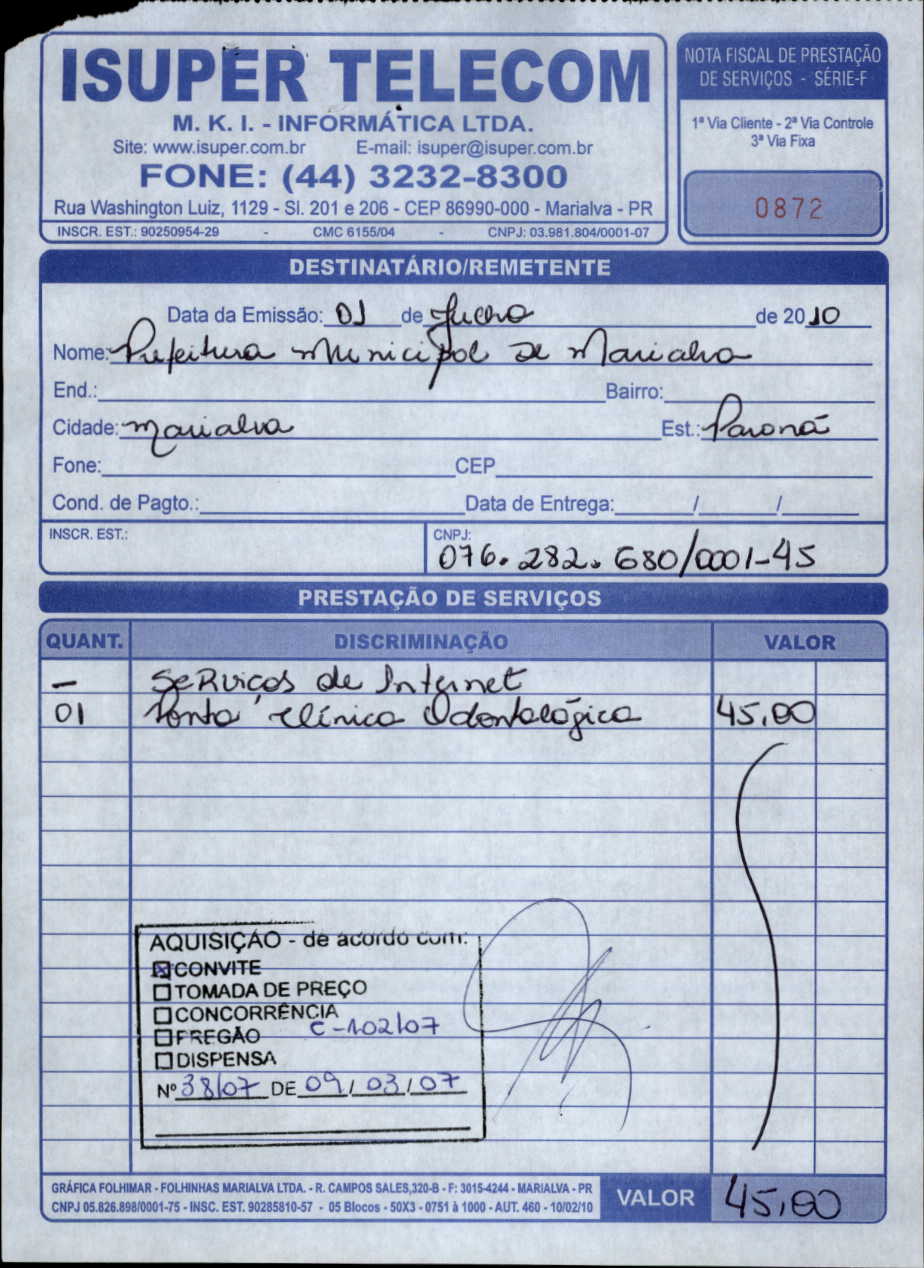 ISUPER TELECOM
M. K. I. - INFORMÁTICA LTDA.
Site: www.isuper.com.br E-mail: isuper@isuper.com.br
FONE: (44) 3232-8300
Rua Washington Luiz, 1129 - Sl. 201 e 206 - CEP 86990-000 - Marialva - PR
INSCR. EST.: 90250954-29 - CMC 6155/04 - CNPJ: 03.981.804/0001-07
NOTA FISCAL DE PRESTAÇÃO
DE SERVIÇOS - SÉRIE-F
1ª Via Cliente - 2ª Via Controle
3ª Via Fixa
0872
DESTINATÁRIO/REMETENTE
Data da Emissão: 01 de Julho de 2010
Nome: Prefeitura Municipal de Marialva
End.: Bairro:
Cidade: Marialva Est.: Paraná
Fone: CEP
Cond. de Pagto.: Data de Entrega: / /
INSCR. EST.: CNPJ: 076.282.680/0001-45
PRESTAÇÃO DE SERVIÇOS
QUANT. DISCRIMINAÇÃO VALOR
- Serviços de Internet
01 Ponto Clínica Odontológica 45,00
AQUISIÇÃO - de acordo com:
CONVITE
TOMADA DE PREÇO
CONCORRÊNCIA
PREGÃO C-102/07
DISPENSA
Nº 38/07 DE 09/03/07
GRÁFICA FOLHIMAR - FOLHINHAS MARIALVA LTDA. - R. CAMPOS SALES,320-B - F: 3015-4244 - MARIALVA - PR
CNPJ 05.826.898/0001-75 - INSC. EST. 90285810-57 - 05 Blocos - 50X3 - 0751 à 1000 - AUT. 460 - 10/02/10
VALOR 45,00